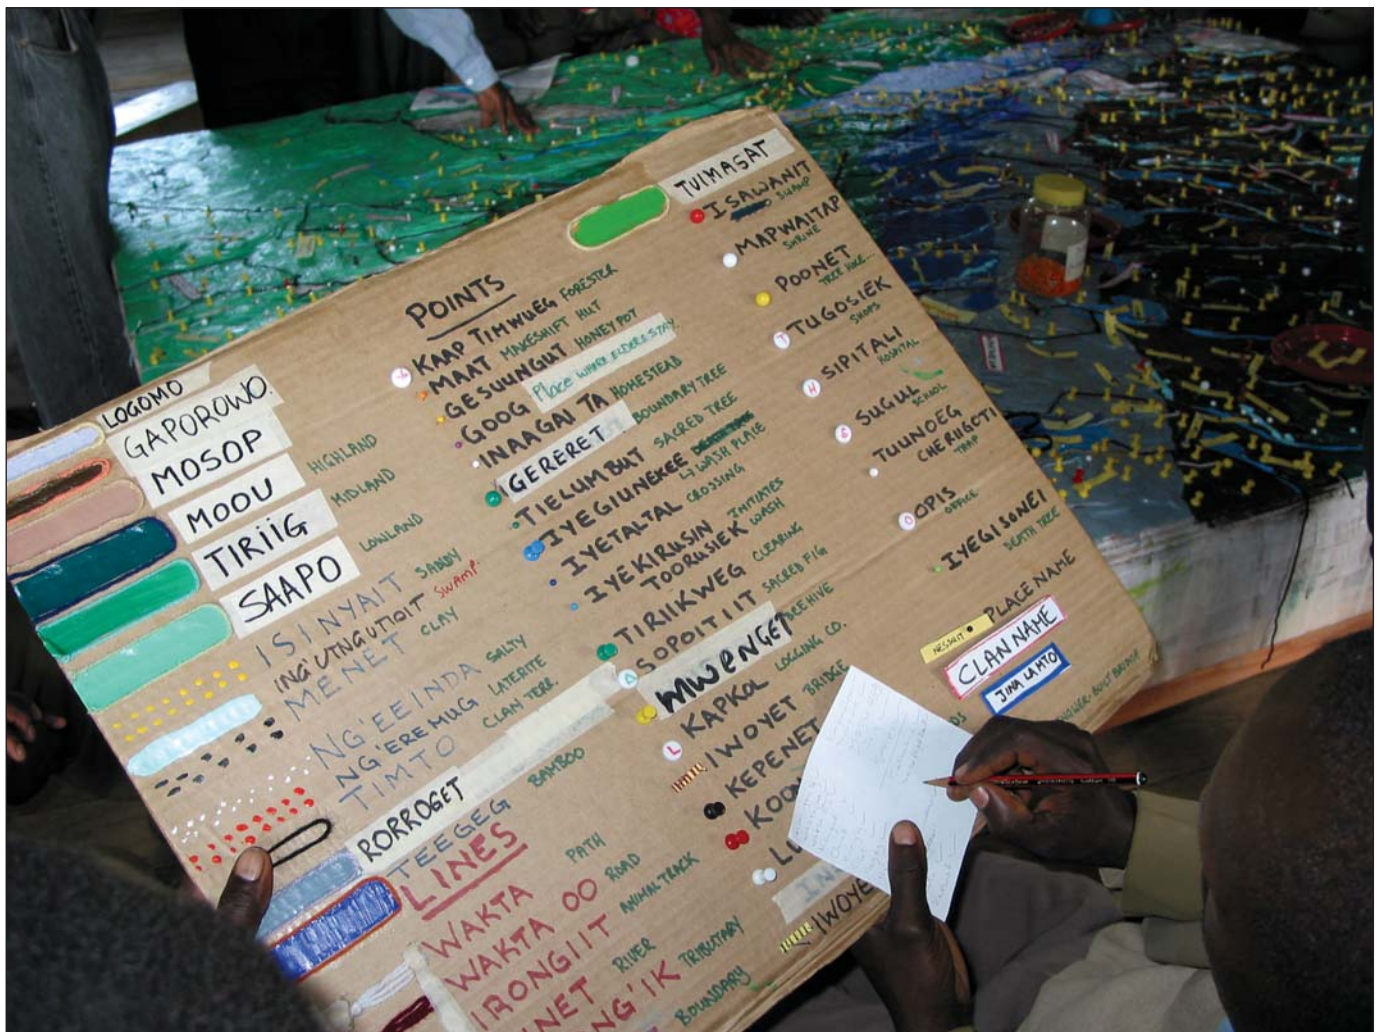 LOGOMO
GAPOROWO.
MOSOP HIGHLAND
MOOU MIDLAND
TIRIIG LOWLAND
SAAPO
ISINYAIT SANDY
ING'UTNGUTIOIT SWAMP.
MENET CLAY
NG'EEINDA SALTY
NG'EREMUG LATERITE
TIMTO CLAN TERR.
RORROGET
TEEGEG BAMBOO
LINES
WAKTA PATH
WAKTA OO ROAD
IRONGIIT ANIMAL TRACK
RIVER
TRIBUTARY
BOUNDARY
POINTS
KAAP TIMWUEG FORESTER
MAAT MAKESHIFT HUT
GESUUNGUT HONEYPOT
GOOG Place WHERE ELDERS STAY.
INAAGAI TA HOMESTEAD
GERERET BOUNDARY TREE
TIELUMBUT SACRED TREE
IYEGIUNEKEE WASH PLACE
IYETALTAL CROSSING
IYEKIRUSIN INITIATES
TOORUSIEK WASH
TIRIIKWEG CLEARING
SOPOITIIT SACRED FIG
MWENGET BEEHIVE
L KAPKOL LOGGING CO.
IWOYET BRIDGE
KEPENET
TUIMASAT
ISAWANIT
SWAMP
MAPWAITAP
SHRINE
POONET
TREE HOLE...
T TUGOSIEK
SHOPS
H SIPITALI
HOSPITAL
S SUGUL
SCHOOL
TUUNOEG
CHERIIGOTI
TRAP
O OPIS
OFFICE
IYEGISONEI
DEATH TREE
NESSUIT PLACE NAME
CLAN NAME
JINA LA MTO